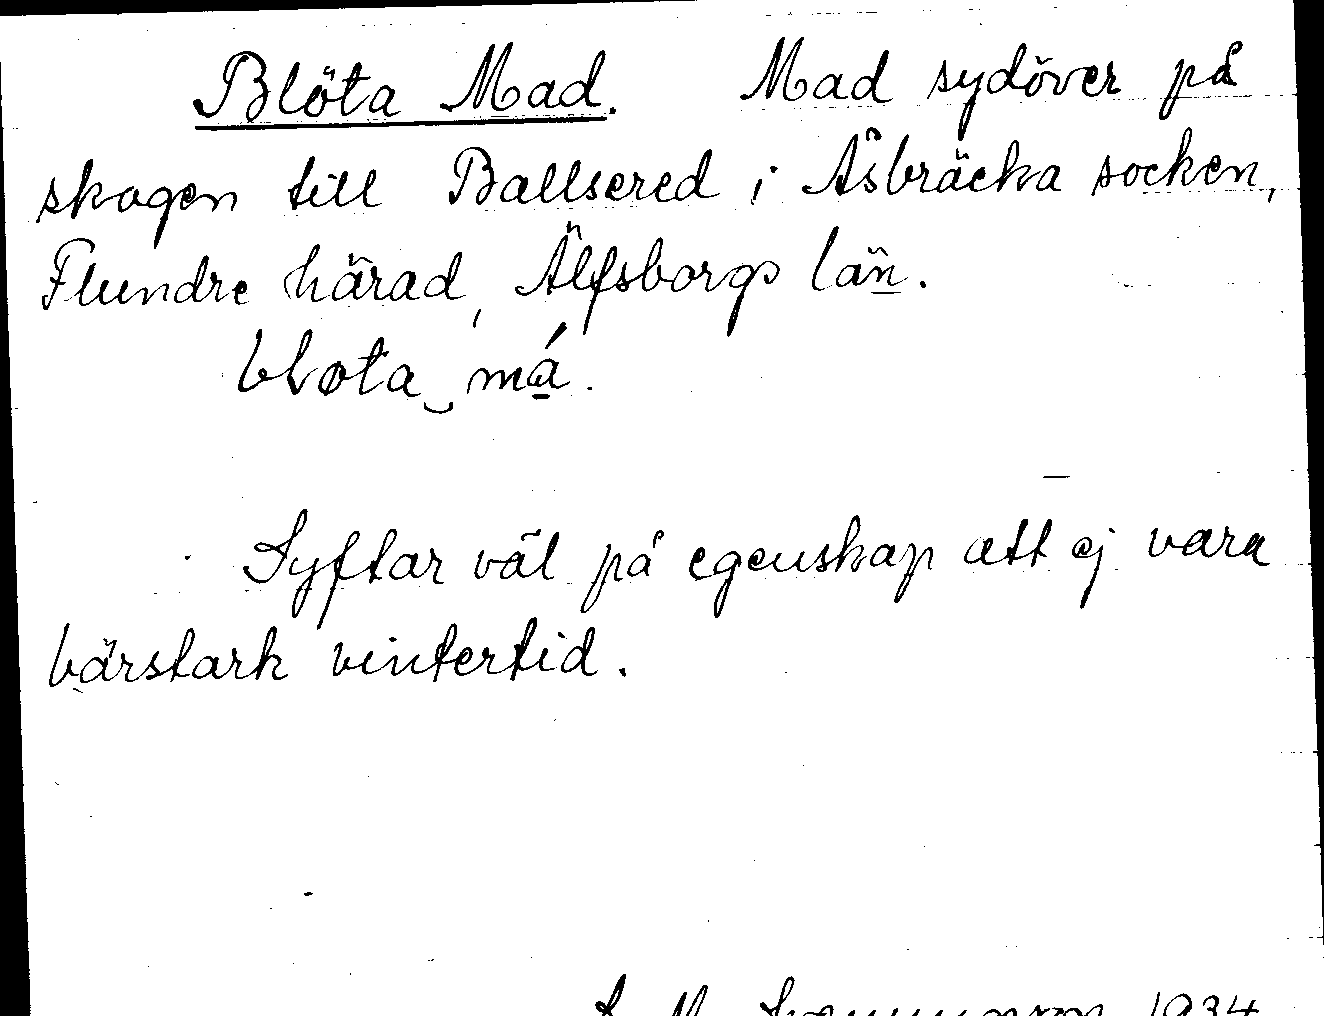 Blöta Mad. Mad sydöver på
skogen till Ballsered i Åsbräcka socken,
Flundre härad, Älfsborgs län.
bløta‿má.
Syftar väl på egenskap att ej vara
bärstark vintertid.
1934